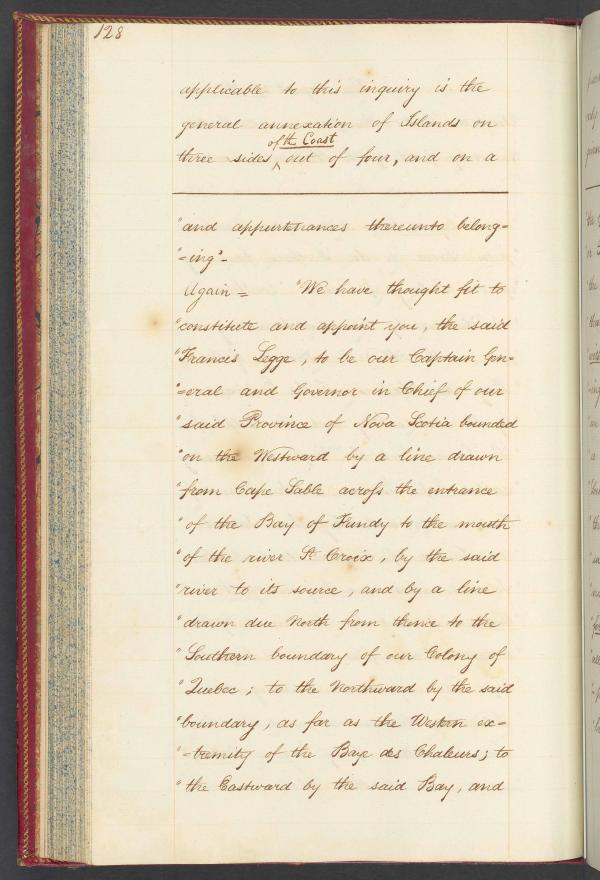 128
applicable to this inquiry is the
general annexation of Islands on
of the Coast
three sides ‸ out of four, and on a
"and appurtenances thereunto belong=
"=ing"_
Again = "We have thought fit to
"constitute and appoint you, the said
"Francis Legge, to be our Captain Gen=
"=eral and Governor in Chief of our
"said Province of Nova Scotia bounded
"on the Westward by a line drawn
"from Cape Sable acroſs the entrance
"of the Bay of Fundy to the mouth
"of the river St Croix, by the said
"river to its source, and by a line
"drawn due North from thence to the
"Southern boundary of our Colony of
"Quebec; to the Northward by the said
"boundary, as far as the Western ex=
"=tremity of the Baye des Chaleurs; to
"the Eastward by the said Bay, and